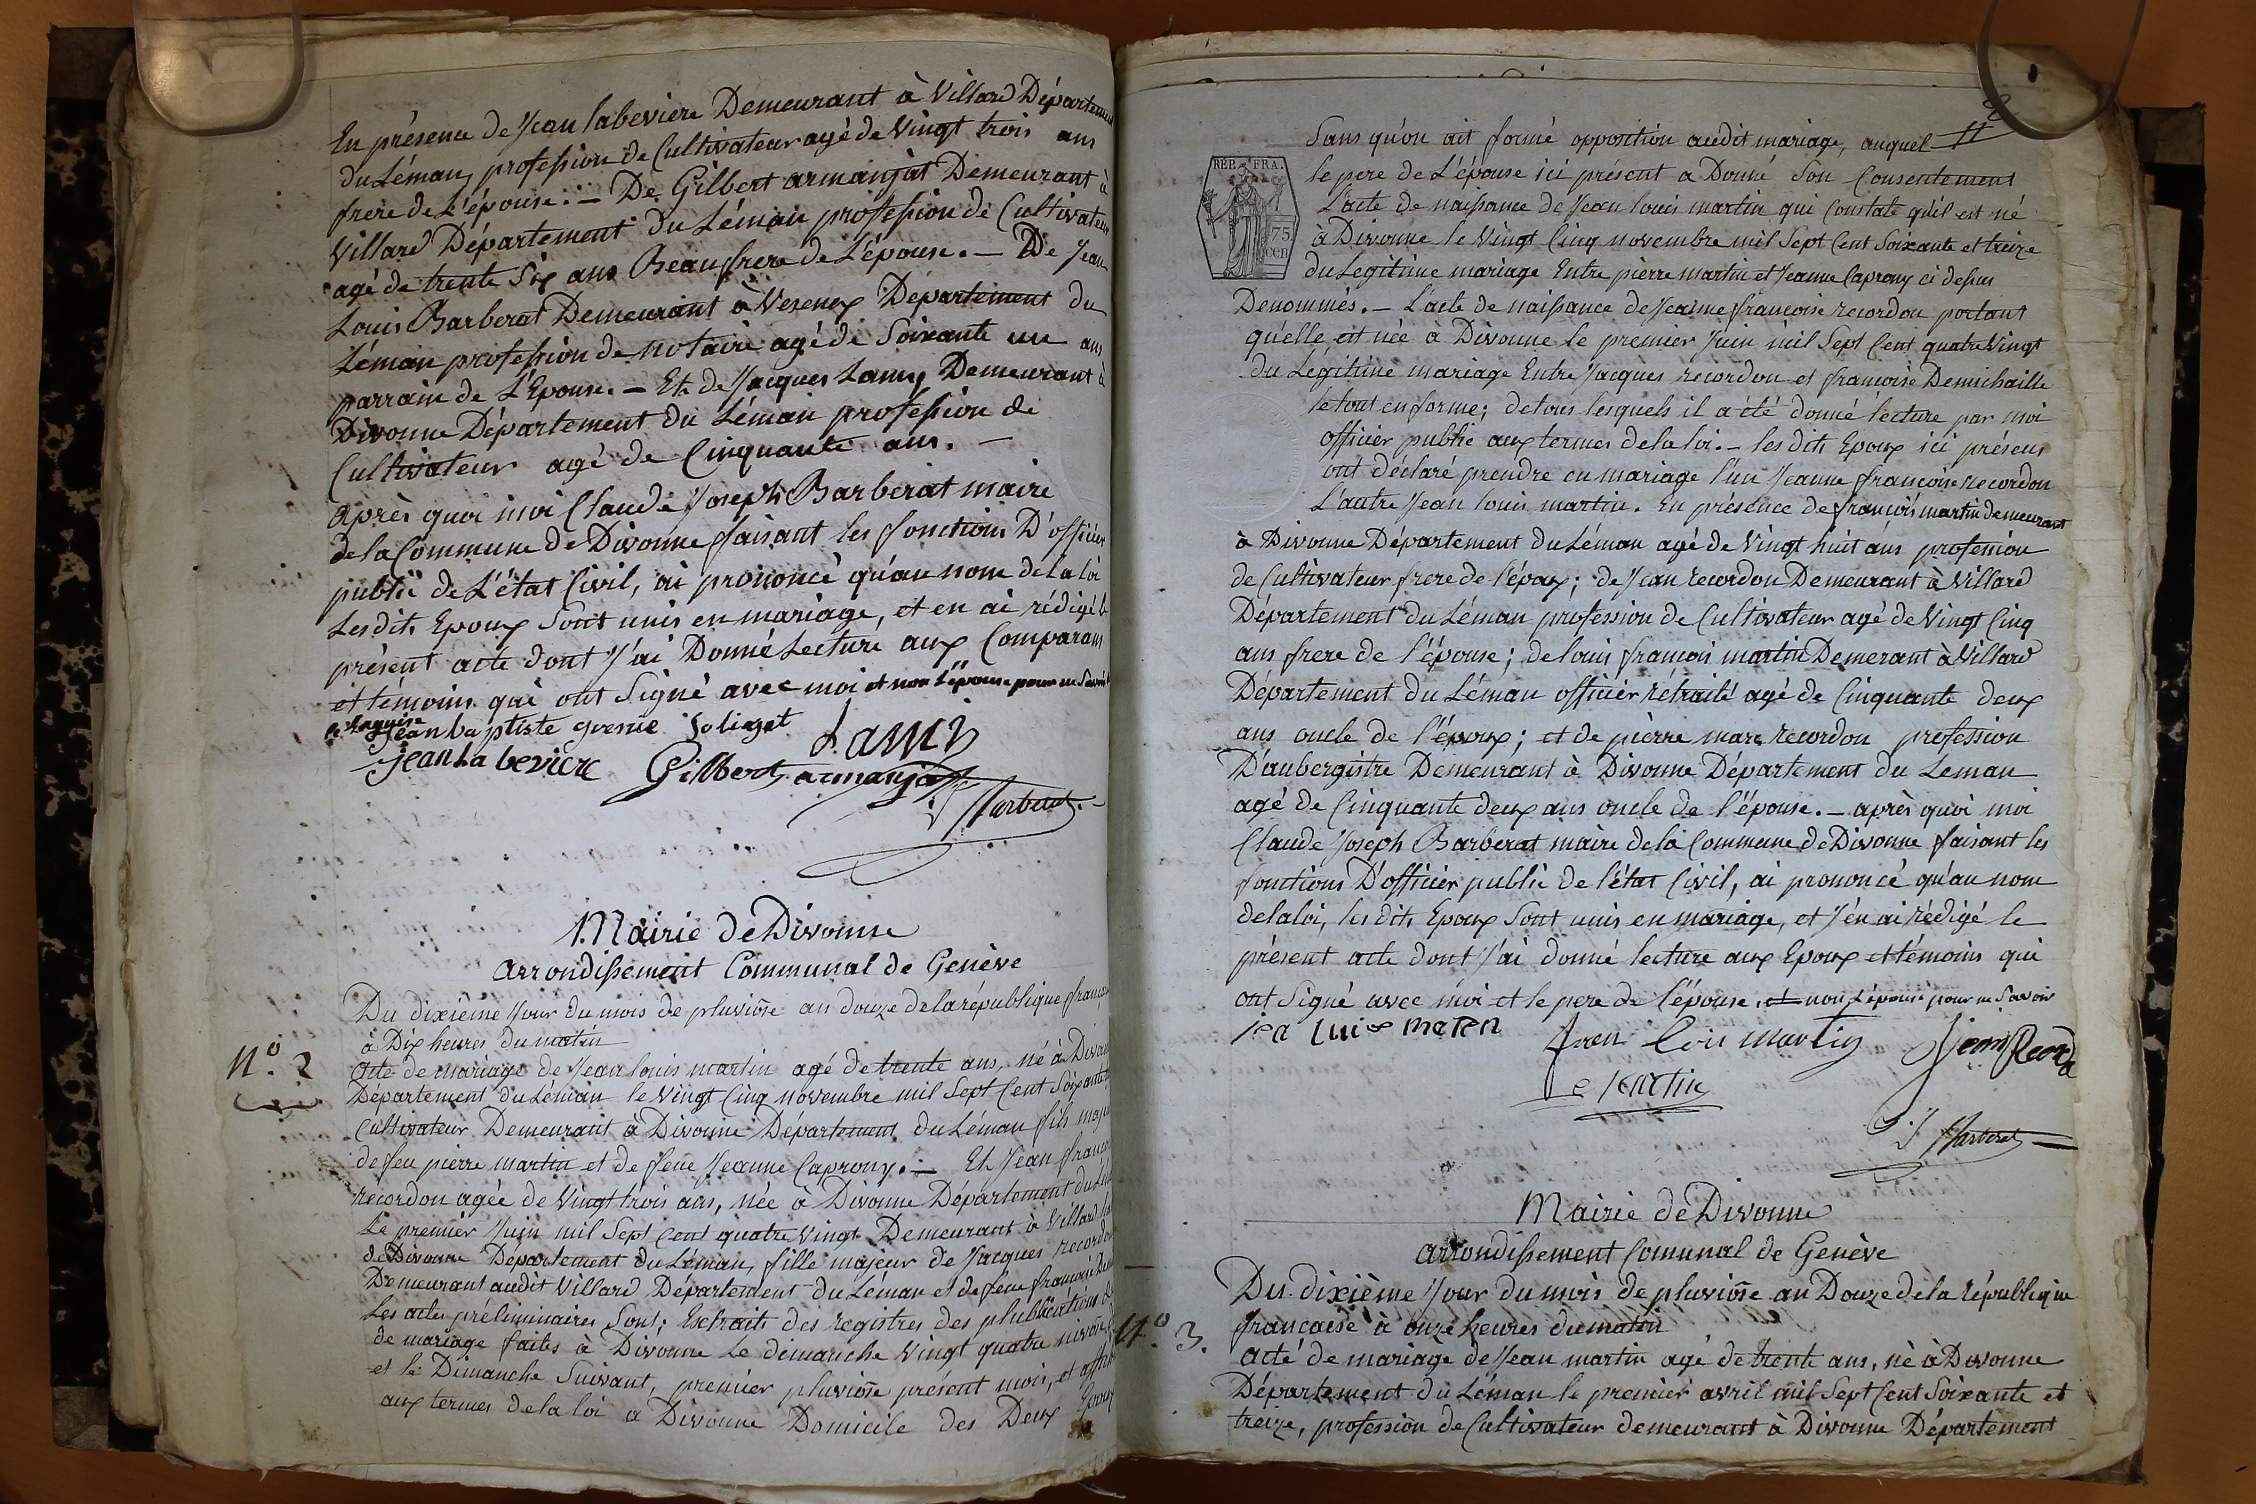 En présence de Jean Labeviere Demeurant à Villard Département
du Léman, profession de Cultivateur agé de Vingt trois ans
frere de L'épouse. — De Gilbert armanjat Demeurant à
Villard Département du Léman profession de Cultivateur
agé de trente Six ans Beaufrere de L'épouse. — De Jean
Louis Barberat Demeurant à Vesenex Département du
Léman profession de Notaire agé de Soixante un ans
parrain de L'Epouse. — Et de Jacques Lamy Demeurant à
Divonne Département du Léman profession de
Cultivateur agé de Cinquante ans. —
après quoi moi Claude Joseph Barberat maire
de la Commune de Divonne faisant les fonctions D'officier
public de L'état Civil, ai prononcé qu'au nom de la loi
Lesdits Epoux Sont unis en mariage, et en ai rédigé le
présent acte dont J'ai Donné Lecture aux Comparans
et témoins qui ont Signé avec moi et non L'épouse pour ne Savoir
ce requise
jean baptiste grenie joliget Lami
jean La beviere Gilbert armanja
Barberat
Mairie de Divonne
arrondissement Communal de Genève
Du dixième Jour du mois de pluviôse an douze de la république française
à Dix heures du matin
N.º 2
acte de mariage de Jean louis martin agé de trente ans, né à Divonne
Département du Léman le Vingt Cinq novembre mil Sept Cent Soixante
Cultivateur Demeurant à Divonne Département du Léman fils majeur
de feu pierre martin et de feue Jeanne Caprony. — Et Jean françoise
recordon agée de Vingt trois ans, née à Divonne Département du Léman
Le premier Juin mil Sept Cent quatre Vingt Demeurant à Villard
de Divonne Département du Léman, fille majeur de Jacques recordon
Demeurant audit Villard Département du Léman et de feue francoise
Les actes préliminaires Sont; Extraits des registres des publications de
de mariage faites à Divonne Le dimanche Vingt quatre nivôse
et le Dimanche Suivant, premier pluviôse présent mois, et
aux termes de la loi a Divonne Domicile des Deux Epoux
Sans qu'on ait formé opposition audit mariage, auquel
REP. FRA.
75
cen
le pere de L'épouse ici présent a Donné Son Consentement
L'acte de naissance de Jean louis martin qui Constate qu'il est né
à Divonne le Vingt Cinq novembre mil Sept Cent Soixante et treize
du Legitime mariage Entre pierre martin et Jeanne Caprony ci dessus
Denommés. — L'acte de naissance de Jeanne francoise recordon portant
qu'elle est née à Divonne le premier Juin mil Sept Cent quatre Vingt
du Légitime mariage Entre Jacques recordon et francoise Demichaille
le tout en forme; de tous lesquels il a été donné lecture par moi
officier public aux termes de la loi. — les dits Epoux ici présens
ont déclaré prendre en mariage l'un Jeanne francoise recordon
L'autre Jean louis martin. En présence de francois martin demeurant
à Divonne Département du Léman agé de Vingt huit ans profession
de Cultivateur frere de l'époux; de Jean recordon Demeurant à Villard
Département du Léman profession de Cultivateur agé de Vingt Cinq
ans frere de l'épouse; de louis francois martin Demerant à Villard
Département du Léman officier retraité agé de Cinquante deux
ans oncle de l'époux; et de pierre marc recordon profession
D'aubergistre Demeurant à Divonne Département du Leman
agé de Cinquante deux ans oncle de l'épouse. — après quoi moi
Claude Joseph Barberat maire de la Commune de Divonne faisant les
fonctions D'officier public de l'état Civil, ai prononcé qu'au nom
de la loi, lesdits Epoux Sont unis en mariage, et J'en ai rédigé le
présent acte dont J'ai donné lecture aux Epoux et témoins qui
ont Signé avec moi et le pere de l'épouse, et non L'épouse pour ne Savoir
Loui martin Jean
Barberat
Mairie de Divonne
arrondissement Comunal de Genève
Du dixième Jour du mois de pluviôse an Douze de la république
francaise à onze heures du matin
N.º 3.
acte de mariage de Jean martin agé de trente ans, né à Divonne
Département du Léman le premier avril mil Sept Cent Soixante et
treize, profession de Cultivateur demeurant à Divonne Département